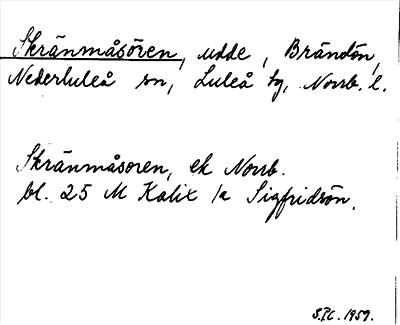 Skränmåsören, udde, Brändön,
Nederluleå sn, Luleå tg, Norrb. l.
Skränmåsoren, ek Norrb.
bl. 25 M Kalix /a Sigfridsön.
S.F.C. 1959.